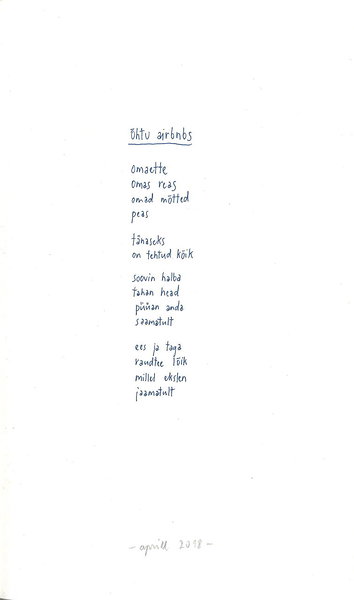 õhtu airbnbs
omaette
omas reas
omad mõtted
peas
tänaseks
on tehtud kõik
soovin halba
tahan head
püüan anda
saamatult
ees ja taga
raudtee lõik
millel ekslen
jaamatult
– aprill 2018 –